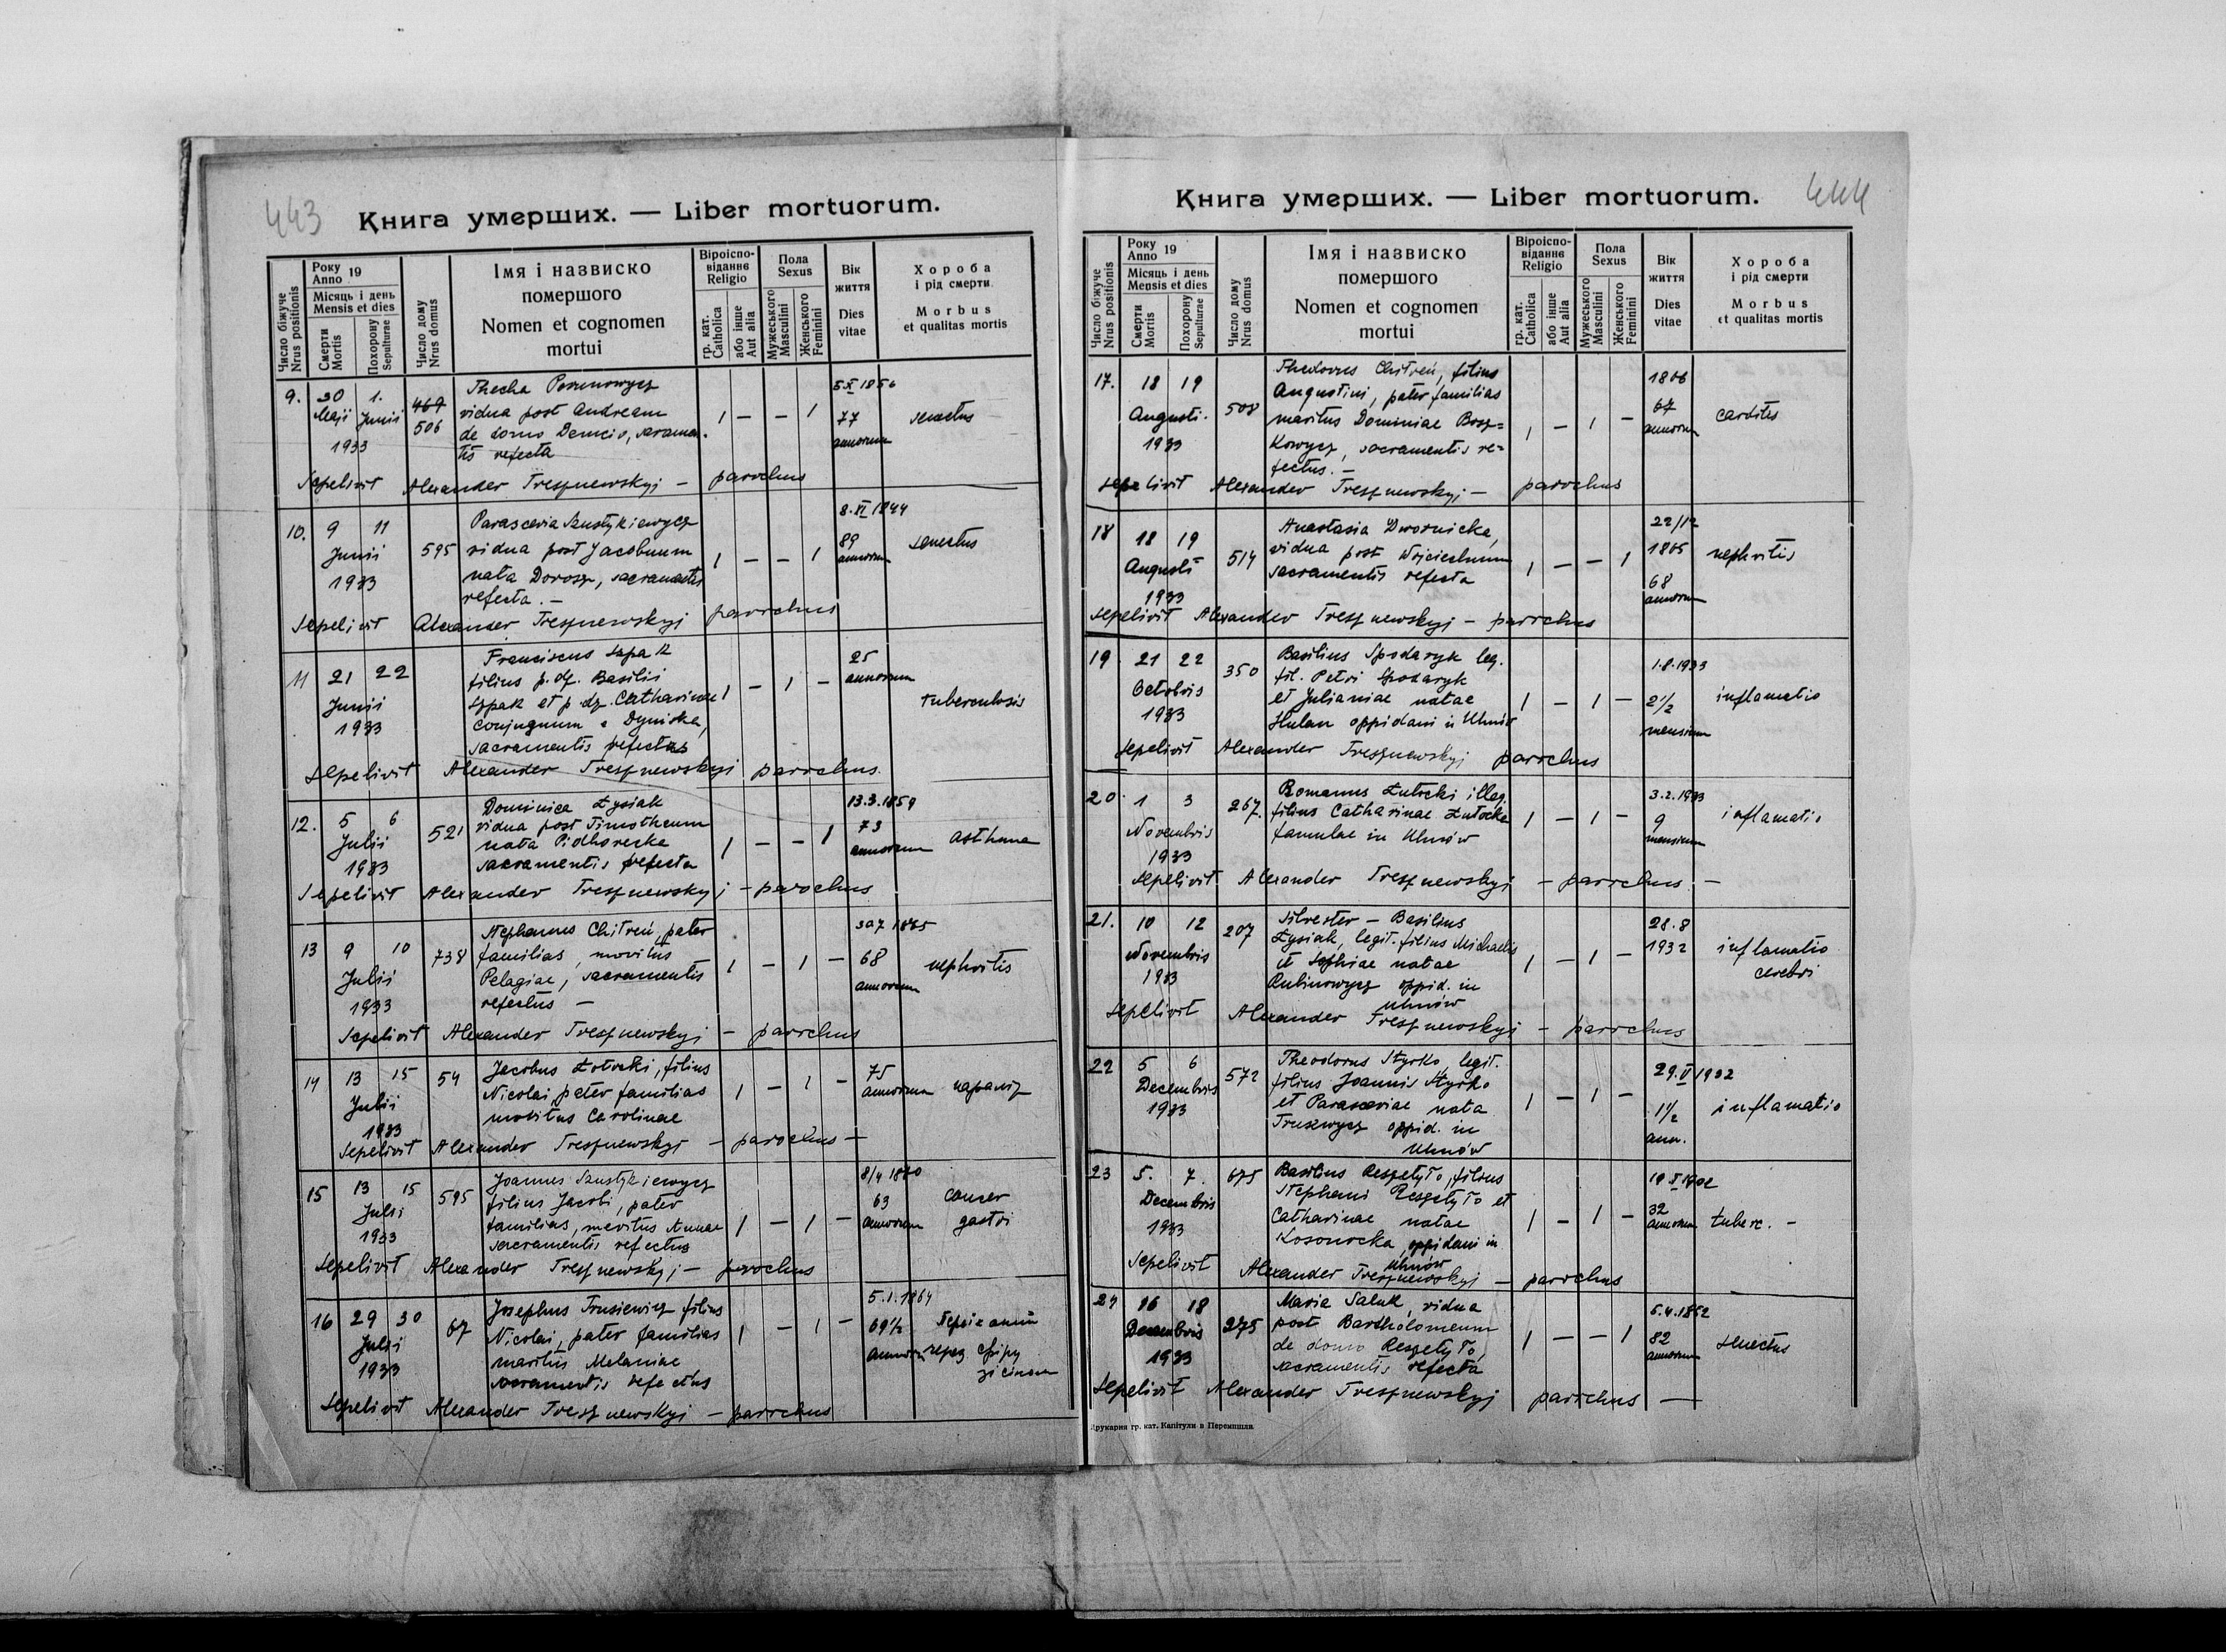 443
Книга умерших. — Liber mortuorum.
Число біжуче
Nrus positionis
Року
Anno 19
Місяць і день
Mensis et dies
Смерти
Mortis
Похорону
Sepulturae
Число дому
Nrus domus
Імя і назвиско
помершого
Nomen et cognomen
mortui
Віроіспо-
віданнє
Religio
гр. кат.
Catholica
або інше
Aut alia
Пола
Sexus
Мужеського
Masculini
Женського
Feminini
Вік
життя
Dies
vitae
Хороба
і рід смерти
Morbus
et qualitas mortis
9. 30 1.
Maji Junii
1933
469
506
Thecla
vidua post Andream
de domo Demcio, sacramen-
tis refecta
1 — — 1
5 X 1856
77
annorum
senectus
Sepelivit Alexander Tresznewskyj — parochus
10. 9 11
Junii
1933
595
Parascevia Szustykiewycz
vidua post Jacobum
nata Dorosz, sacramentis
refecta. —
1 — — 1
8. XI 1844
89
annorum
senectus
Sepelivit Alexander Tresznewskyj parochus
11 21 22
Junii
1933
Franciscus Szpak
filius p. df. Basilii
Szpak et p. df. Catharinae
conjugum e Dyniska,
sacramentis refectus
1 — 1 —
25
annorum
tuberculosis
Sepelivit Alexander Tresznewskyj parochus.
12. 5 6
Julii
1933
521
Dominica Łysiak
vidua post Timotheum
nata Pidhorecka
sacramentis refecta
1 — — 1
13.3.1859
73
annorum
asthma
Sepelivit Alexander Tresznewskyj — parochus
13 9 10
Julii
1933
738
Stephanus Chitreń, pater
familias, maritus
Pelagiae, sacramentis
refectus —
1 — 1 —
1865
68
annorum
nephritis
Sepelivit Alexander Tresznewskyj — parochus
14 13 15
Julii
1933
54
Jacobus Łotocki, filius
Nicolai, pater familias
maritus Carolinae
1 — 1 —
75
annorum
параліз
Sepelivit Alexander Tresznewskyj — parochus —
15 13 15
Julii
1933
595
Joannes Szustykiewycz
filius Jacobi, pater
familias, maritus Annae
sacramentis refectus
1 — 1 —
8/4 1870
63
annorum
cancer
gastri
Sepelivit Alexander Tresznewskyj — parochus
16 29 30
Julii
1933
67
Josephus Trusiewicz filius
Nicolai, pater familias
maritus Melaniae
sacramentis refectus
1 — 1 —
5.1.1864
69½
annorum
через фіру
зі сіном
Sepelivit Alexander Tresznewskyj — parochus
444
Книга умерших. — Liber mortuorum.
Число біжуче
Nrus positionis
Року
Anno 19
Місяць і день
Mensis et dies
Смерти
Mortis
Похорону
Sepulturae
Число дому
Nrus domus
Імя і назвиско
помершого
Nomen et cognomen
mortui
Віроіспо-
віданнє
Religio
гр. кат.
Catholica
або інше
Aut alia
Пола
Sexus
Мужеського
Masculini
Женського
Feminini
Вік
життя
Dies
vitae
Хороба
і рід смерти
Morbus
et qualitas mortis
17. 18 19
Augusti.
1933
508
Theodorus Chitreń, filius
Augustini, pater familias
maritus Dominiae Bosz=
kowycz, sacramentis re=
fectus. —
1 — 1 —
1866
67
annorum
carditis
Sepelivit Alexander Tresznewskyj — parochus
18 18 19
Augusti
1933
514
Anastasia Dwornicka,
vidua post Wojciechum
sacramentis refecta
1 — — 1
22/12
1865
68
annorum
nephritis
Sepelivit Alexander Tresznewskyj — parochus
19 21 22
Octobris
1933
350
Basilius Spodaryk leg.
fil. Petri Spodaryk
et Julianiae natae
Hulan oppidani in Uhnów
1 — 1 —
1.8.1933
2½
mensium
inflamatio
Sepelivit Alexander Tresznewskyj parochus
20. 1 3
Novembris
1933
267.
Romanus Łutocki illeg.
filius Catharinae Łutocka
famulae in Uhnów
1 — 1 —
3.2.1933
9
mensium
inflamatio
Sepelivit Alexander Tresznewskyj — parochus —
21. 10 12
Novembris
1933
207
Silvester — Basilius
Łysiak, legit. filius Michaelis
et Sophiae natae
Rubinowycz oppid. in
Uhnów
1 — 1 —
28.8
1932
inflamatio
cerebri
Sepelivit Alexander Tresznewskyj — parochus
22 5 6
Decembris
1933
572
Theodorus Styrko, legit.
filius Joannis Styrko
et Parasceviae nata
Trusewycz oppid. in
Uhnów
1 — 1 —
29. V 1932
1½
ann.
inflamatio
23 5. 7.
Decembris
1933
675
Basilius Reszetyło, filius
Stephani Reszetyło et
Catharinae natae
Kosonocka, oppidani in
Uhnów
1 — 1 —
19 X 1902
32
annorum
tuberc. —
Sepelivit Alexander Tresznewskyj — parochus
24 16 18
Decembris
1933
275
Maria Saluk, vidua
post Bartholomeum
de domo Reszetyło,
sacramentis refecta
1 — — 1
5.4.1852
82
annorum
senectus
Sepelivit Alexander Tresznewskyj parochus —
Друкарня гр. кат. Капітули в Перемишли.